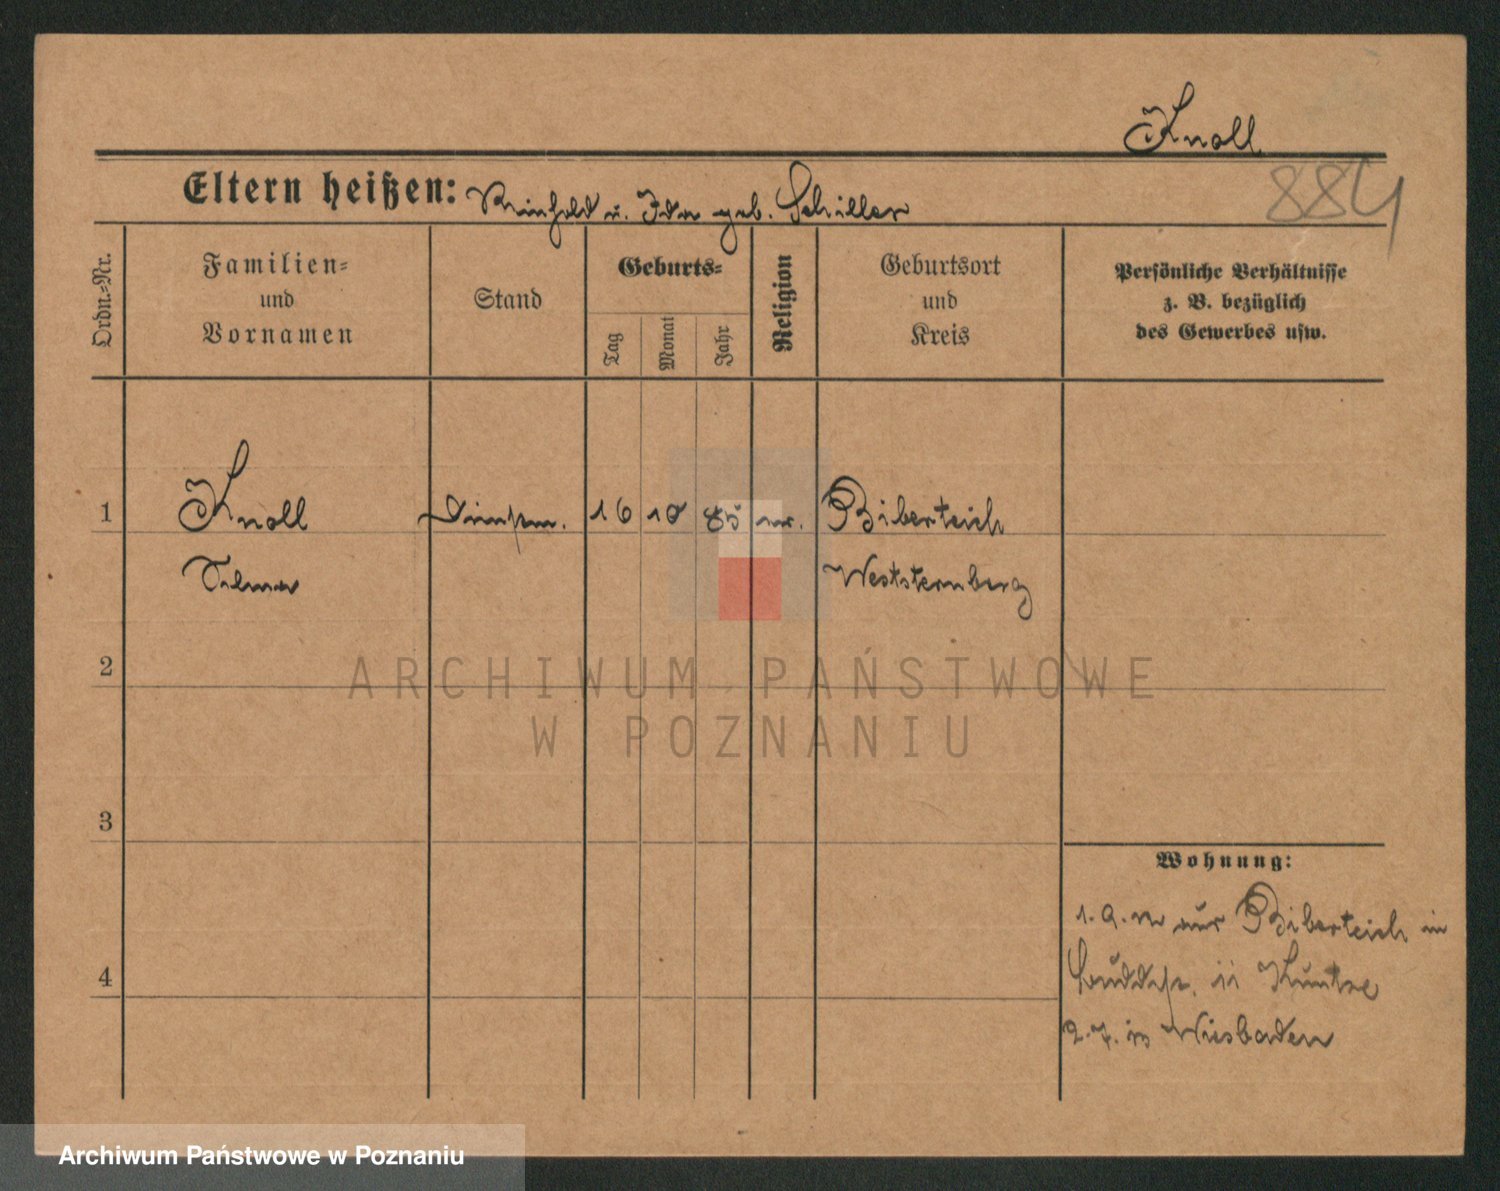 Knoll
Eltern heißen: Reinhold u. Ida geb. Schiller
884
Ordn.-Nr.
Familien-
und
Vornamen
Stand
Geburts-
Tag
Monat
Jahr
Religion
Geburtsort
und
Kreis
Persönliche Verhältnisse
z. B. bezüglich
des Gewerbes usw.
1
Knoll
Dienstm.
16
10
85
ev.
Biberteich
Selma
Weststernberg
2
ARCHIWUM PAŃSTWOWE
W POZNANIU
3
Wohnung:
Biberteich in
4
Kuntze
2.7. Wiesbaden
Archiwum Państwowe w Poznaniu